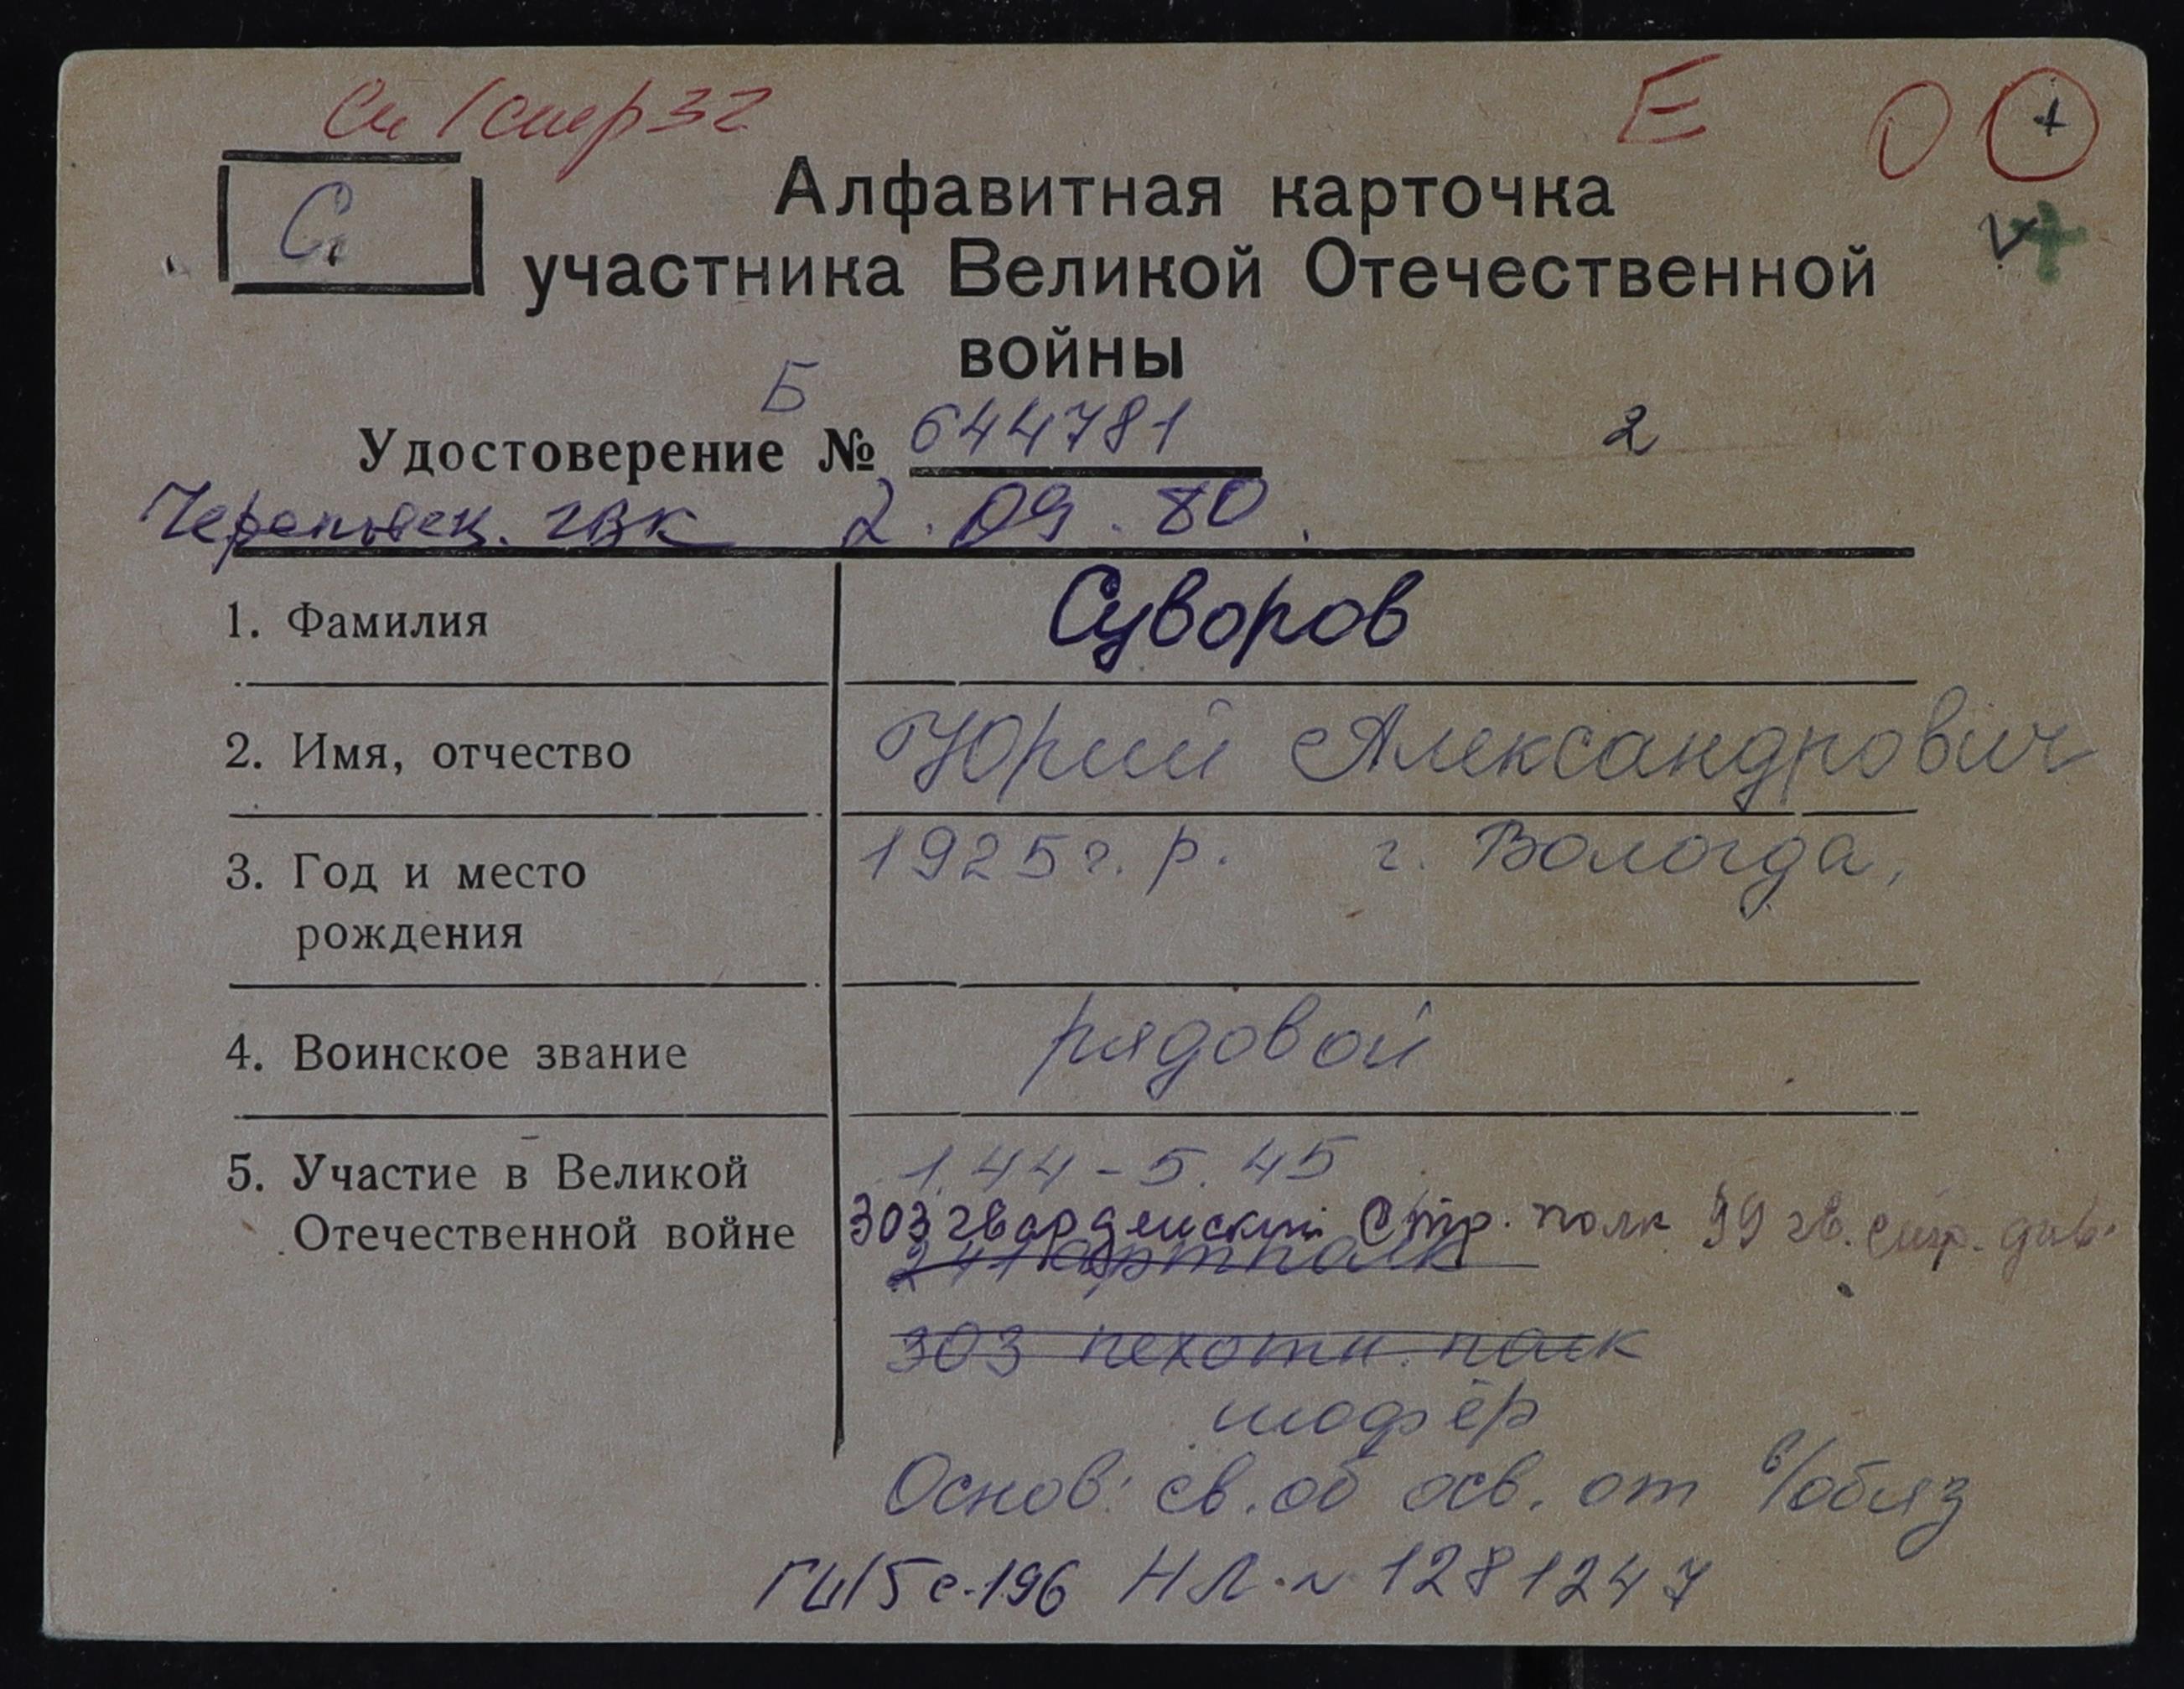 Сп 1 стр 32 Е 0 +
С. Алфавитная карточка
участника Великой Отечественной
войны
Б
Удостоверение № 644781 2
Череповец. ГВК 2.09.80.
1. Фамилия Суворов
2. Имя, отчество Юрий Александрович
3. Год и место 1925 г. р. г. Вологда,
рождения
4. Воинское звание рядовой
5. Участие в Великой 1.44 - 5.45
Отечественной войне 303 гвардейский Стр. полк 99 гв. стр. див.
артполк
303 пехотн. полк
шофёр
Основ: св. об осв. от в/обяз
с.196 НЛ. № 1281247